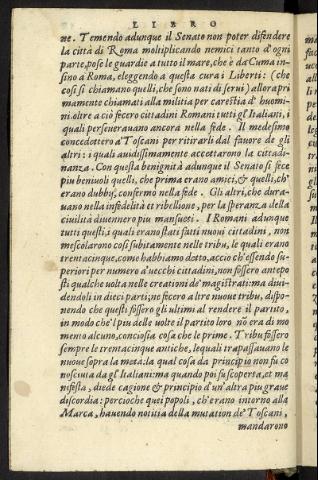 LIBRO
ne. Temendo adunque il Senato non poter difendere
la città di Roma moltiplicando nemici tanto d'ogni
parte, pose le guardie a tutto il mare, che è da Cuma in-
sino a Roma, eleggendo a questa cura i Liberti: (che
cosi si chiamano quelli, che sono nati di serui) allora pri
mamente chiamati alla militia per carestia d'huomi-
ni. oltre a ciò fecero cittadini Romani tutti gl'Italiani, i
quali perseuerauano ancora nella fede. Il medesimo
concedettero a' Toscani per ritirarli dal fauore de gli
altri: i quali auidissimamente accettarono la cittadi-
nanza. Con questa benignità adunque il Senato si fece
piu beniuoli quelli, che prima erano amici, & quelli, ch'
erano dubbij, confermò nella fede. Gli altri, che dura-
uano nella infedeltà et ribellione, per la speranza della
ciuilità diuennero piu mansueti. I Romani adunque
tutti questi, i quali erano stati fatti nuoui cittadini, non
mescolarono cosi subitamente nelle tribu, le quali erano
trentacinque, come habbiamo detto, acciò ch'essendo su-
periori per numero a' uecchi cittadini, non fossero antepo
sti qualche uolta nelle creationi de' magistrati: ma diui-
dendoli in dieci parti, ne fecero altre nuoue tribu, dispo-
nendo che questi fossero gli ultimi al rendere il partito,
in modo che'l piu delle uolte il partito loro nō era di mo
mento alcuno, conciosia cosa che le prime. Tribu fossero
sempre le trentacinque antiche, lequali trapassauano le
nuoue sopra la metà: la qual cosa da principio non fu co
nosciuta da gl'Italiani: ma quando poi fu scoperta, et ma
nifesta, diede cagione & principio d'un'altra piu graue
discordia: percioche quei popoli, ch'erano intorno alla
Marca, hauendo notitia della mutation de' Toscani,
mandarono